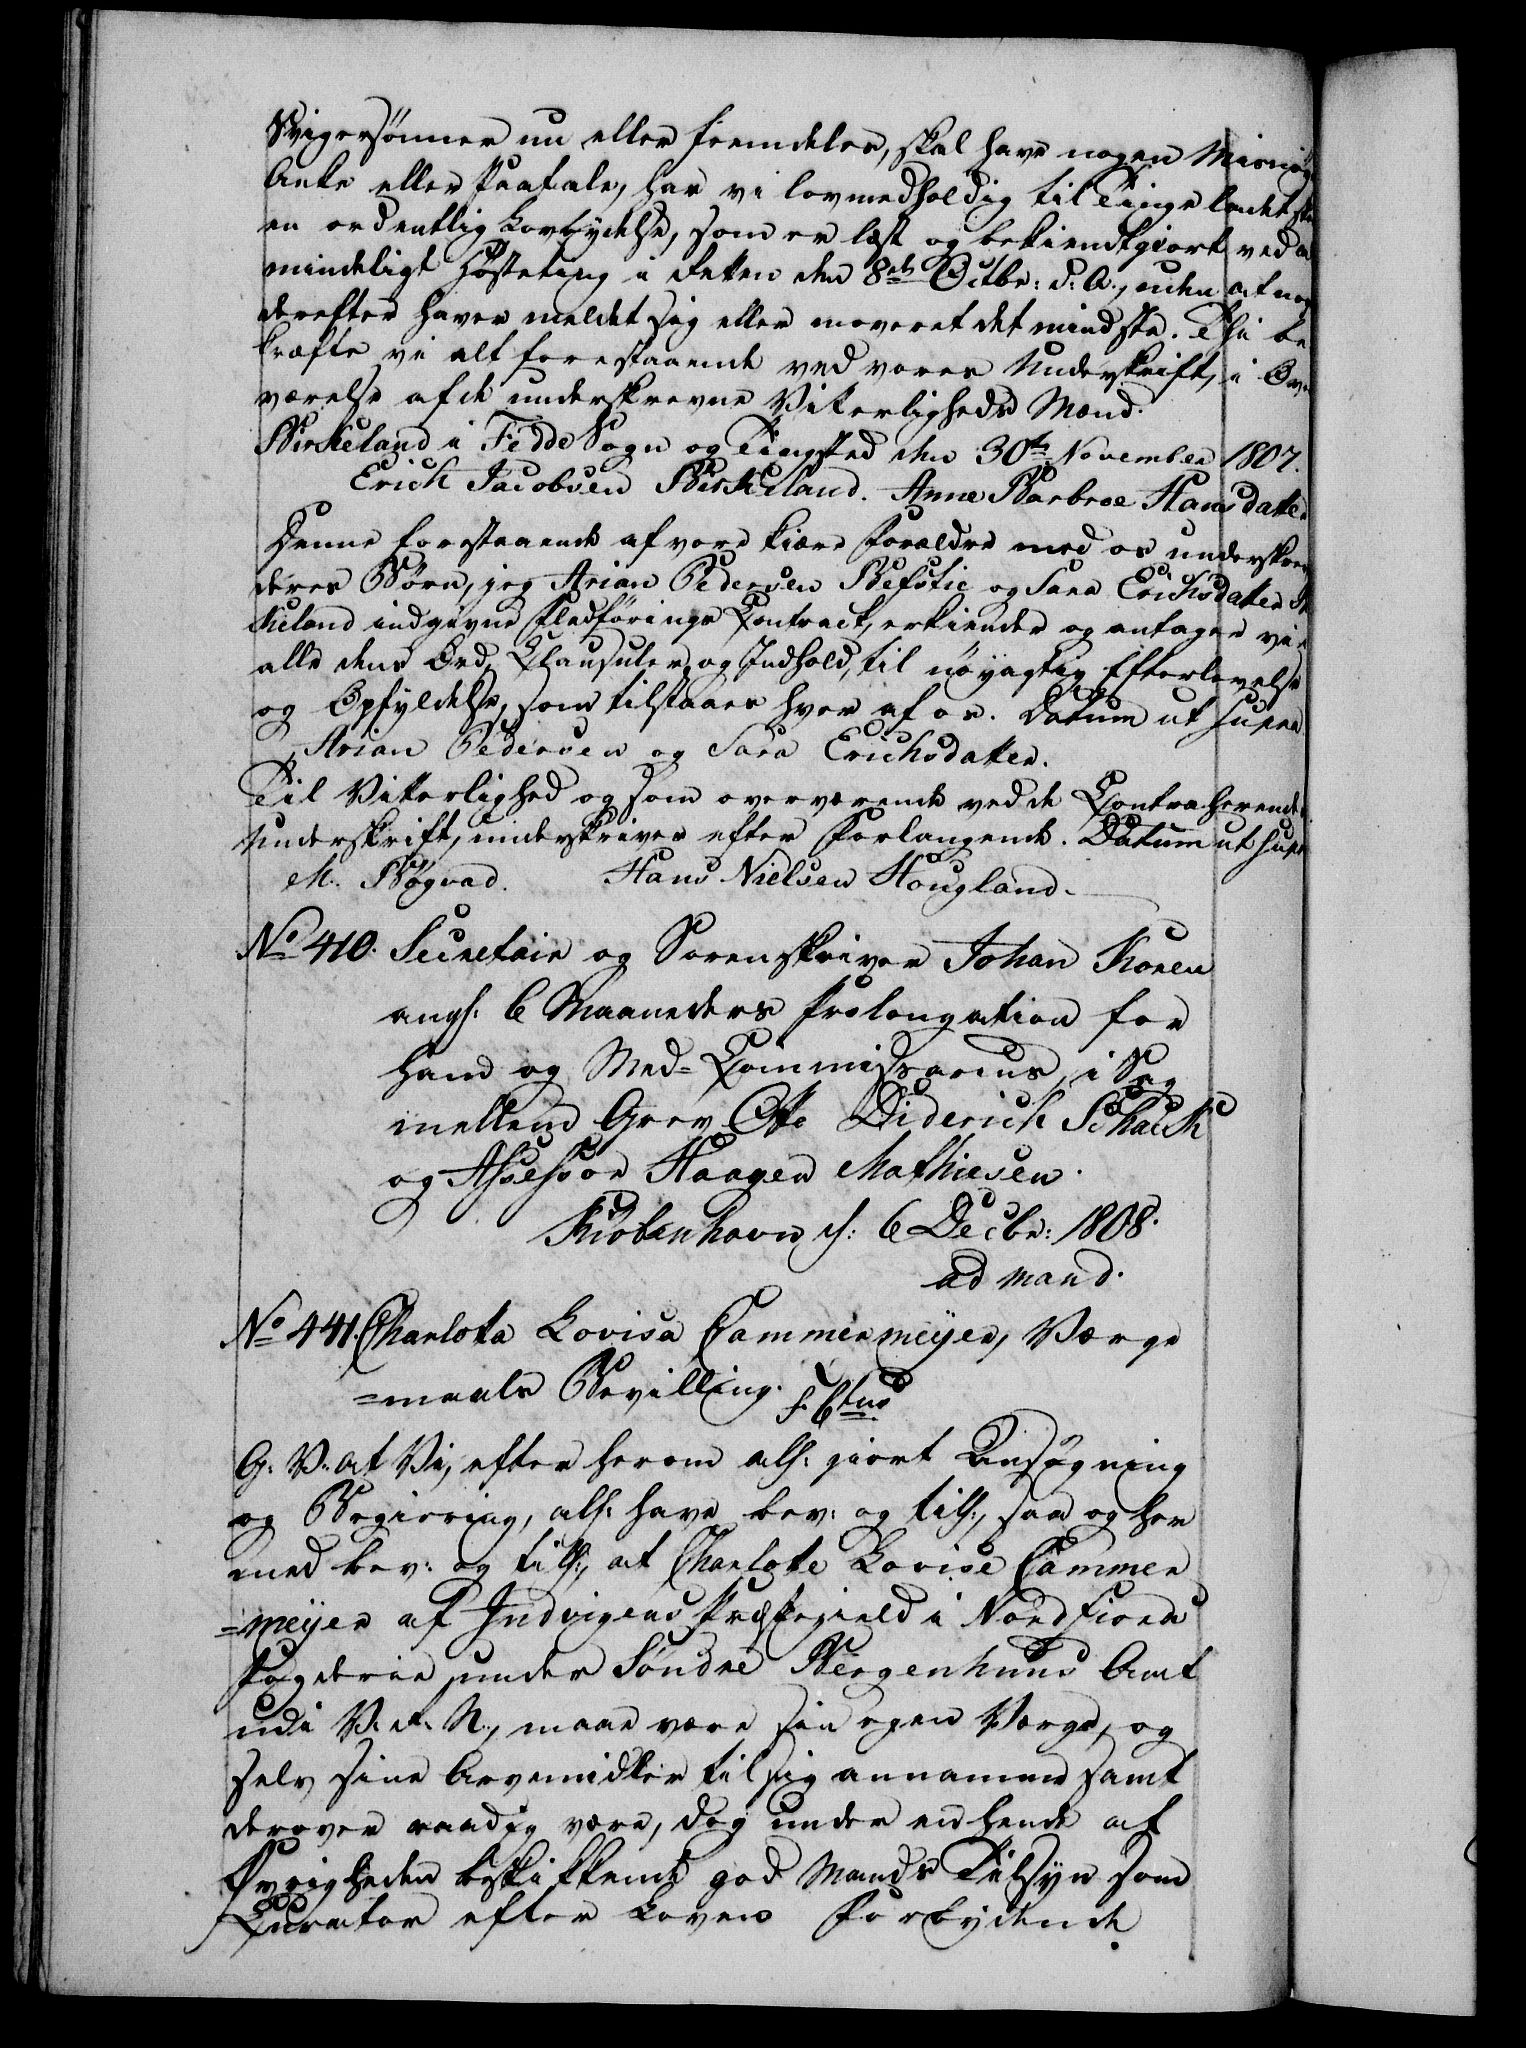 Svigersønner nu eller fremdeles, skal have nogen Misnøy
Anke eller Paatale, har vi lovmedholdig til Tinge ladet
en ordentlig Lovbydelse, som er læst og bekiendtgiort ved al
mindeligt Høsteting i Fetten den 8de Octbr: d: A:, uden at nog
derefter haver meldet sig eller moveret det mindste. Thi be
kræfte vi alt forestaaende ved vores Underskrift, i Over
værelse af de underskrevne Vitterligheds Mænd.
Birkeland i Fedde Sogn og Tingsted den 30te November 1807.
Erich Jacobsen Birkeland. Anne Barbroe Hansdatter
Denne forestaaende af vore kiære Forældre med os underskrev
deres Børn, jeg Arian Pedersen Refstie og Sara Erichsdatter Bir
keland indgivne Fledførings Contract, erkiender og antager vi i
alle dens Ord, Clausuler og Indhold, til nøyagtig Efterlevelse
og Opfyldelse, som tilstaaes hver af os. Datum ut supra
Arian Pedersen og Sara Erichsdatter.
Til Vitterlighed og som overværende ved de Contraherende
Underskrift, underskriver efter Forlangende. Datum ut supr
M. Bøgvad. Hans Nielsen Hougland.
No 410. Secretair og Sorenskriver Johan Koren
angs: 6 Maaneders Prolongation for
ham og Med-Commissarius, i Sag
mellem Grev Otto Diderich Schack
og Assessor Haagen Mathiesen.
Kiøbenhavn d: 6 Decbr: 1808.
ad mand.
No 441. Charlota Lovisa Cammermeyer, Værge
=maals Bevilling. f. 6tus
G: V: at Vi, efter herom alh: giort Ansøgning
og Begiering, alh: have bev: og tilh:, saa og her
med bev: og tilh:, at Charlote Lovise Cammer
=meyer af Indvigens Præstegield i Nordfiords
Fogderie under Søndre Bergenhuus Amt
udi V. R. N., maae være sin egen Værge, og
selv sine Arvemidler til sig annamme samt
derover raadig være, dog under en hende af
Øvrigheden beskikkende god Mands Tilsyn som
Curator efter Loven Forbydende